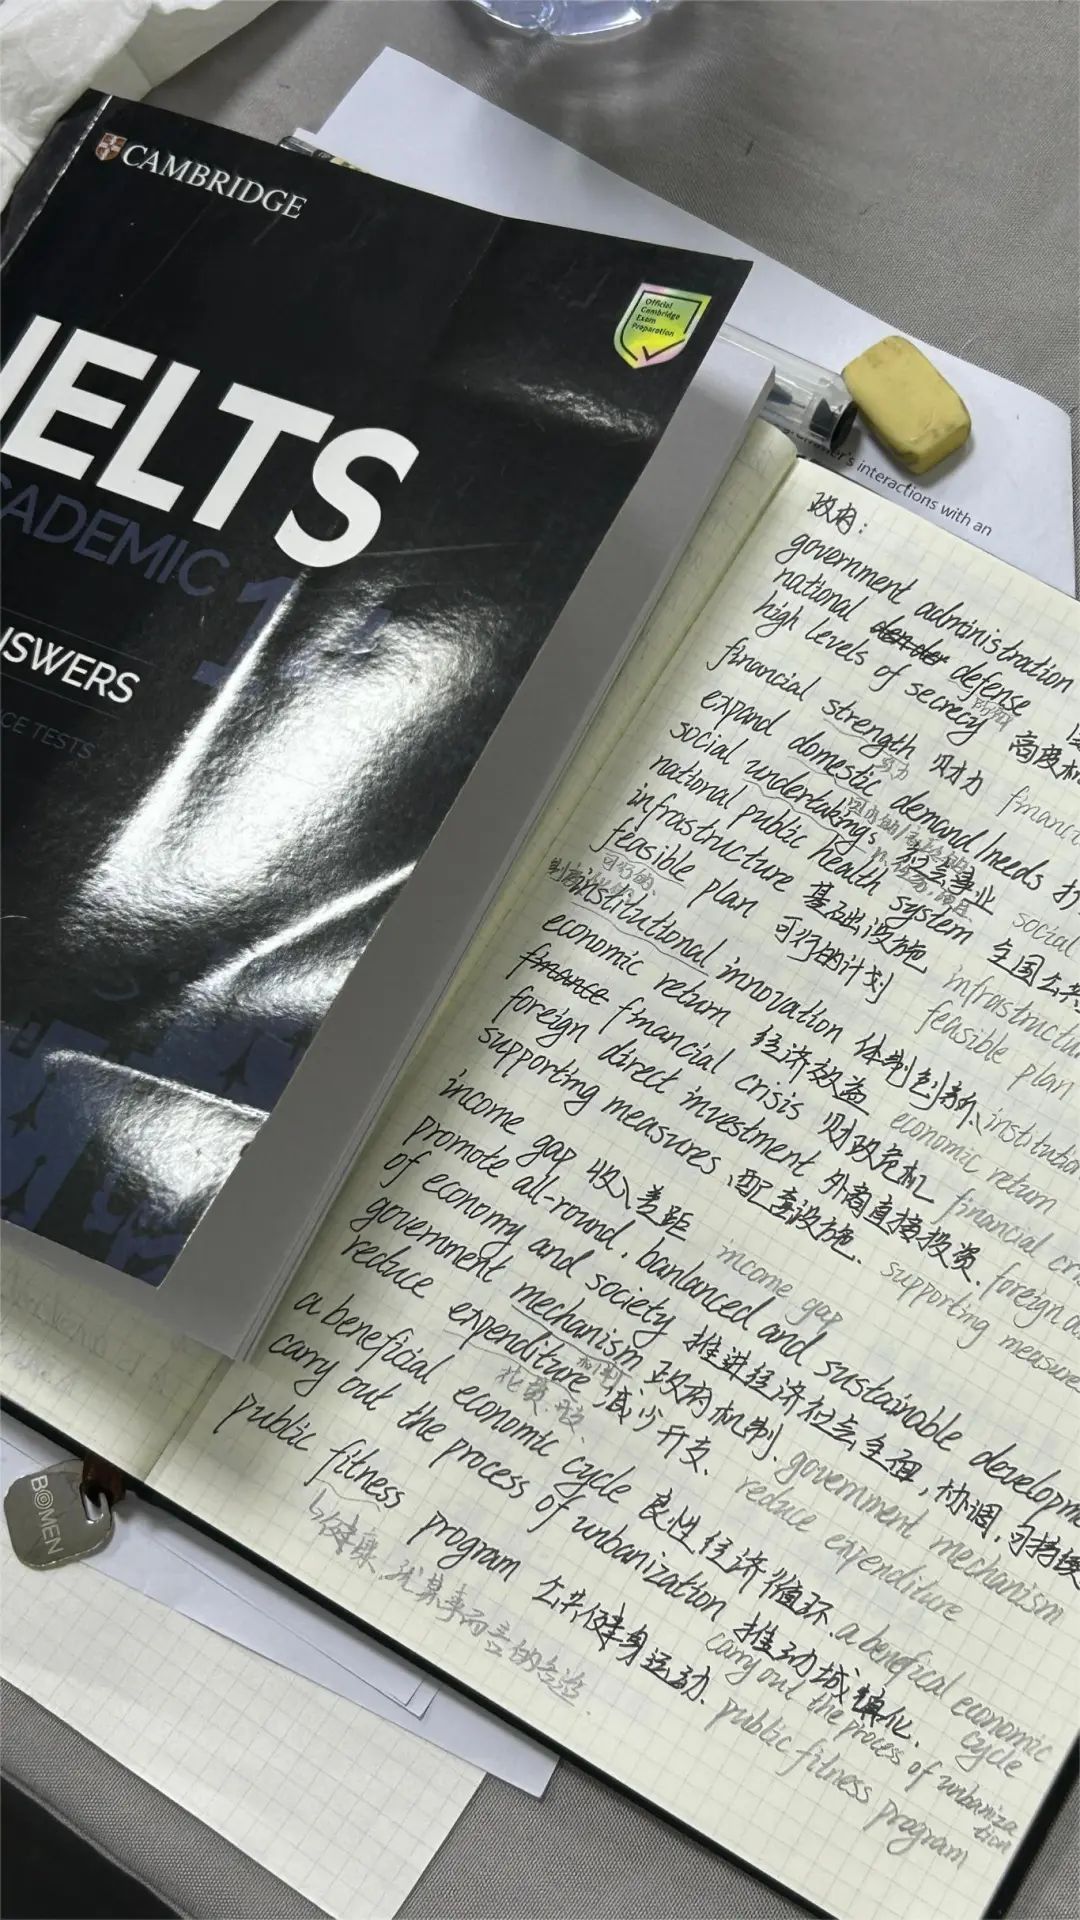 CAMBRIDGE
Official
Cambridge
Exam
Preparation
IELTS
CADEMIC
NSWERS
CE TESTS
's interactions with an
BOMEN
政府:
government administration
national defense
high levels of secrecy 高度机
financial strength 财力 financi
expand domestic demand/needs 扩
social undertakings 社会事业 social
national public health system 全国公共
infrastructure 基础设施 infrastructu
feasible plan 可行的计划 feasible plan
可行的
institutional innovation 体制创新 institution
economic return 经济效益 economic return
finance financial crisis 财政危机 financial cri
foreign direct investment 外商直接投资. foreign d
supporting measures 配套设施. supporting measure
income gap 收入差距 income gap
promote all-round, banlanced and sustainable developme
of economy and society 推进经济社会全面,协调,可持续
government mechanism 政府机制. government mechanism
机制
reduce expenditure 减少开支. reduce expenditure
花费
a beneficial economic cycle 良性经济循环. a benefical economic
cycle
carry out the process of unbanization 推动城镇化.
carry out the process of unbaniza
tion
public fitness program 公共健身运动. public fitness program
↳健康